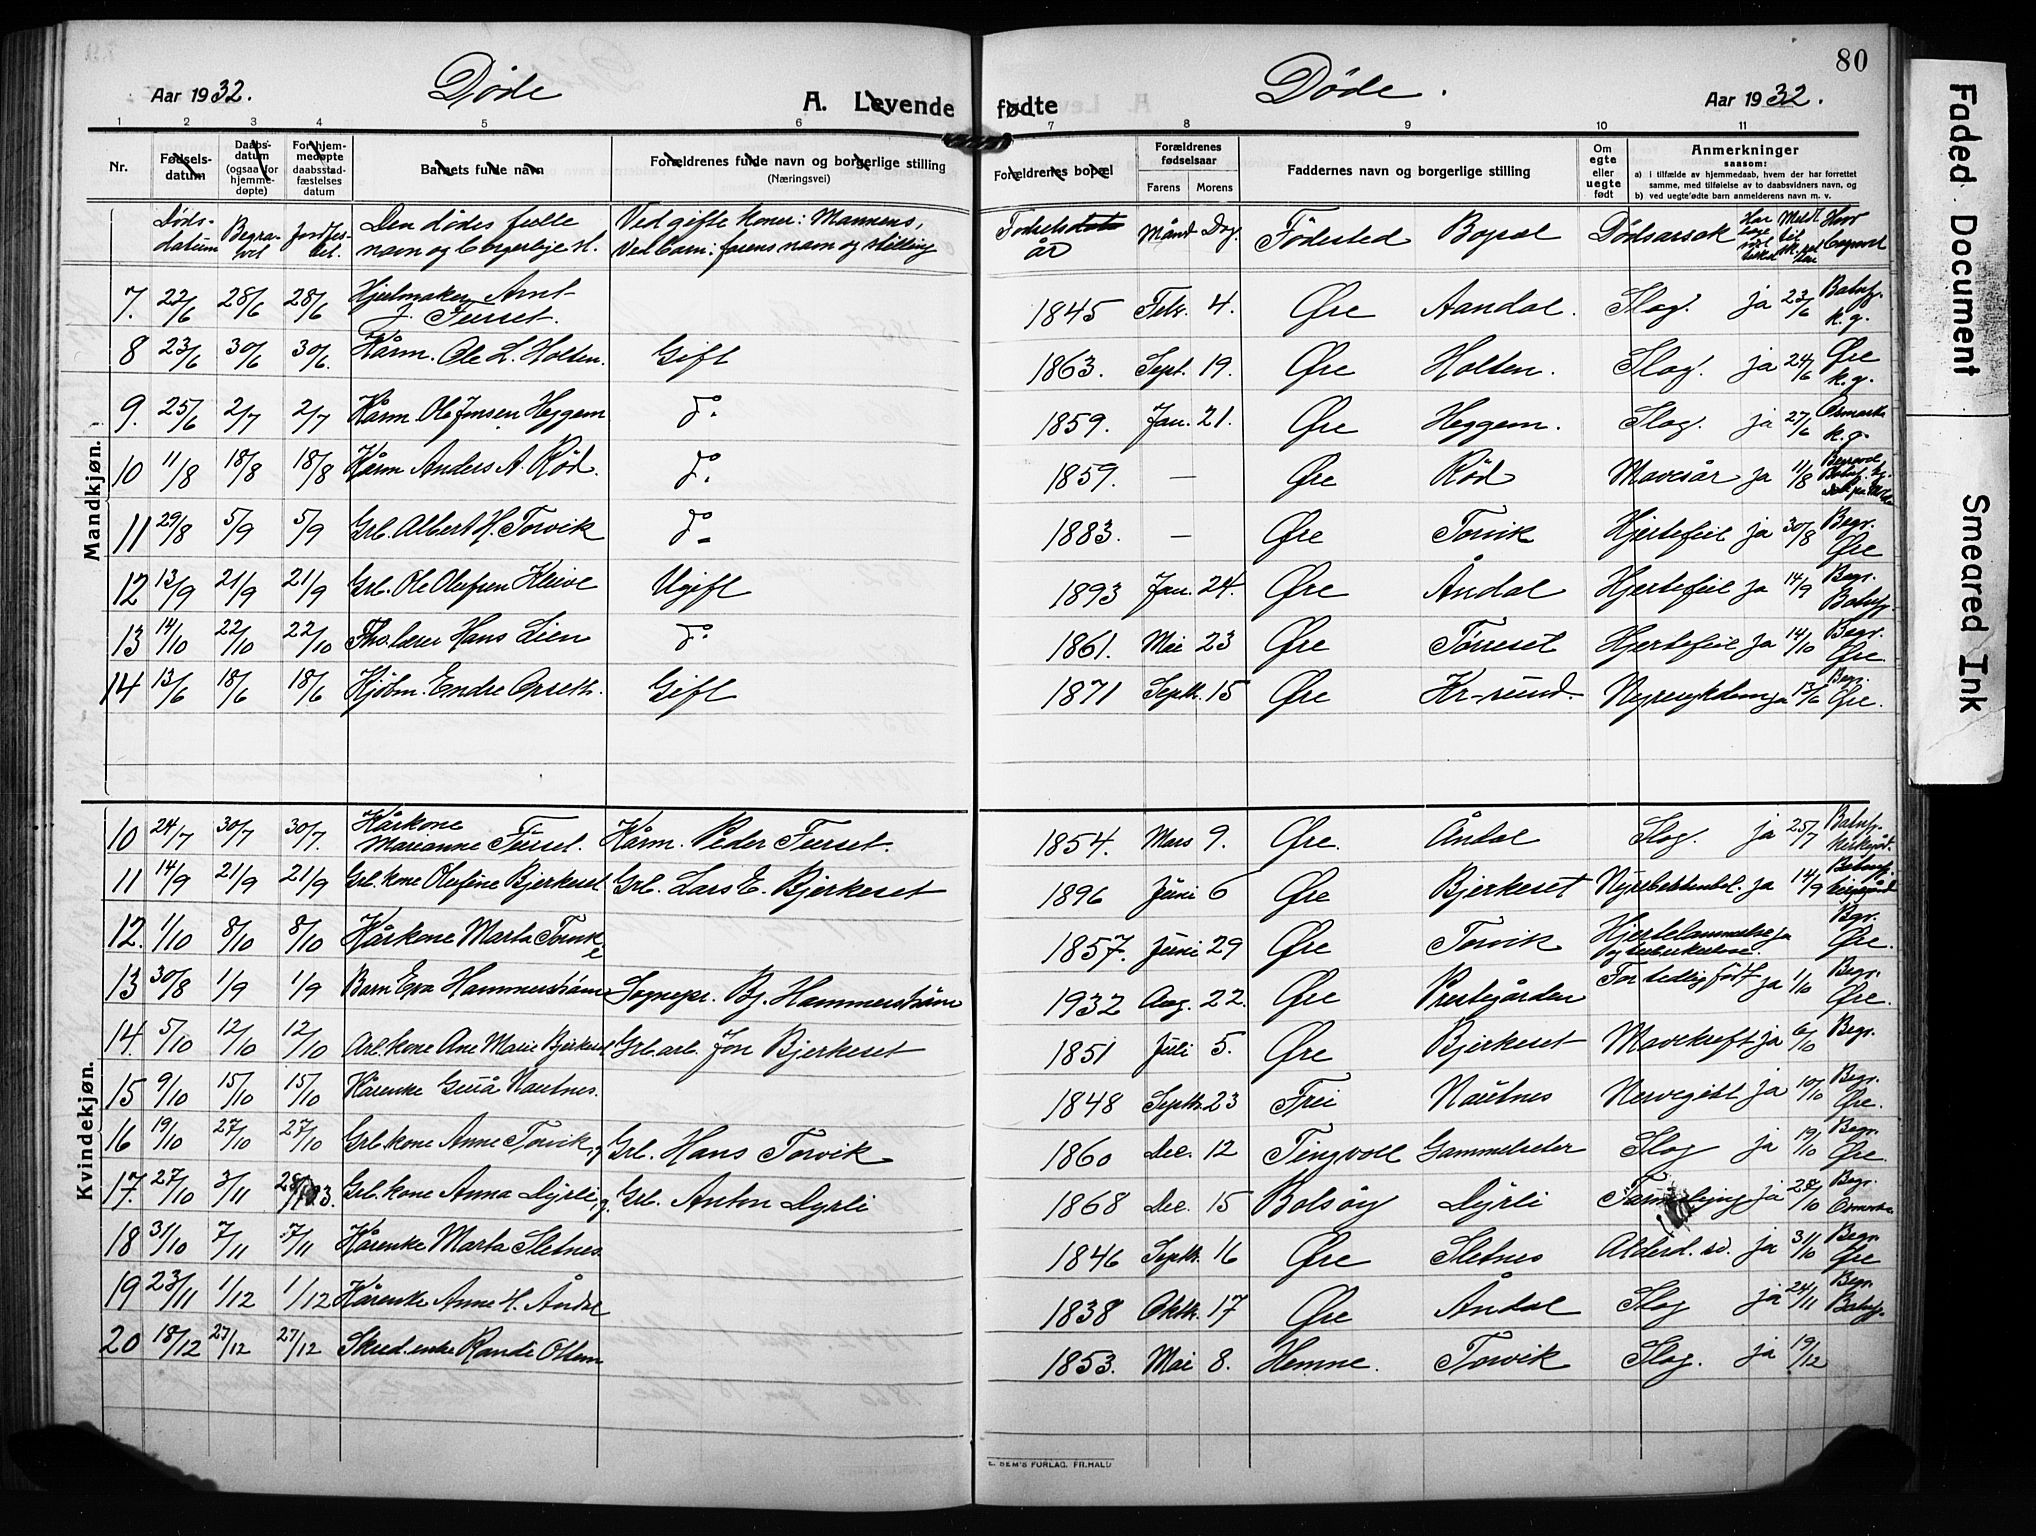 80
Aar 1932. Døde A. Levende fødte Døde. Aar 1932.
1 2 3 4 5 6 7 8 9 10 11
Nr. Fødselsdatum Daabsdatum (ogsaa for hjemmedøpte) For hjemmedøpte daabsstadfæstelses datum Barnets fulde navn Forældrenes fulde navn og borgerlige stilling (Næringsvei) Forældrenes bopæl Forældrenes fødselsaar Farens Morens Faddernes navn og borgerlige stilling Om egte eller uegte født Anmerkninger saasom:
a) i tilfælde av hjemmedaab, hvem der har forrettet samme, med tilføielse av to daabsvidners navn, og
b) ved uegte fødte barn anmelderens navn m. v.
Dødsdatum Begravet Jordfestet. Den dødes fulle navn og borgerlige st. Ved gifte koner: Mannens, Ved barn: farens navn og stilling Fødselsår Månd Dag. Fødested Bopæl Dødsårsak
Mandkjøn.
7. 22/6 28/6 28/6 Hjulmaker Arnt J. Furset. 1845 Febr. 4. Øre Aandal. Slag. ja 23/6 Batnf. k.g.
8 23/6 30/6 30/6. Kårm. Ole L. Holten. Gift 1863. Sept. 19. Øre Holten. Slag. ja 24/6 Øre k.g.
9. 25/6 2/7 2/7 Kårm. Ole Jonsen Heggem do. 1859. Jan. 21. Øre Heggem. Slag. ja 27/6 Osmarka k.g.
10 11/8 18/8 18/8 Kårm Anders A. Rød. do. 1859. — Øre Rød Mavesår ja 11/8
11 29/8 5/9 5/9 Grb. Albert H. Torvik do. 1883. — Øre Torvik Hjertefeil ja 30/8 Begr. Øre
12 13/9 21/9 21/9 Grb. Ole Olufsen Kleive Ugift 1893 Jan. 24. Øre Åndal Hjertefeil ja 14/9 Begr. Batnf.
13 14/10 22/10 22/10 Fhv. lærer Hans Lien do. 1861. Mai 23 Øre Tørreset Hjertefeil ja 14/10 Begr. Øre.
14 13/6 18/6 18/6 Kjøbm. Endre Orseth. Gift 1871 Septb. 15 Øre Kr-sund. Nyresykdom ja 13/6 Begr. Øre.
Kvindekjøn.
10 24/7 30/7 30/7. Kårkone Marianne Furset. Kårm. Peder Furset. 1854. Mars 9. Øre. Åndal Slag. ja 25/7 Batnf. kirkegård.
11 14/9 21/9 21/9 Grb. kone Olufine Bjerkeset. Grb. Lars E. Bjerkeset 1896 Juni 6 Øre Bjerkeset Nyrebekkenbet. ja 14/9 Batnf. kirkegård
12. 1/10 8/10 8/10 Kårkone Marta Torvik 1857. Juni 29 Øre Torvik Hjertelammelse ja og tuberkulose. Begr. Øre.
13 30/8 1/9 1/9 Barn Eva Hammershaim Sognepr. Bj. Hammershaim 1932 Aug. 22. Øre Prestegården For tidlig født ja 1/10 Begr. Øre.
14. 5/10 12/10 12/10 Arb. kone Ane Marie Bjerkeset Grb. arb. Jon Bjerkeset 1851 Juli 5. Øre Bjerkeset Mavekreft ja 6/10 Begr.
15 9/10 15/10 15/10 Kårenke Guruå Nautnes. 1848 Septb. 23 Frei Nautnes Nervegikt ja 10/10 Begr. Øre.
16 19/10 27/10 27/10 Grb. kone Anne Torvik, g. Grb. Hans Torvik 1860 Dec. 12 Tingvoll Gammelseter Slag ja 19/10 Begr. Øre
17. 27/10 3/11 Grb. kone Anna Dyrli, g. Grb. Anton Dyrli 1868 Dec. 15 Bolsøy Dyrli ja 28/10 Begr. Osmarka
18 31/10 7/11 7/11 Kårenke Marta Sletnes 1846 Septb. 16 Øre Sletnes Alderd. sv. ja 31/10 Begr. Øre
19 23/11 1/12 1/12 Kårenke Anne H. Åndal 1838 Oktb. 17 Øre Åndal Slag ja 24/11 Begr. Batnf.
20 18/12 27/12 27/12 Skred.enke Rande Ottem 1853. Mai 8. Hemne. Torvik Slag. ja 19/12
E. SEM'S FORLAG. FR.HALD
Faded Document
Smeared Ink